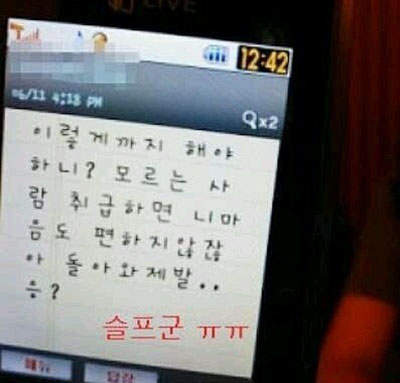 LIVE
12:42
06/11 4:18 PM
x2
이렇게까지 해야
하니? 모르는 사
람 취급하면 니마
음도 편하지않잖
아 돌아와제발..
응?
슬프군 ㅠㅠ
메뉴
답장